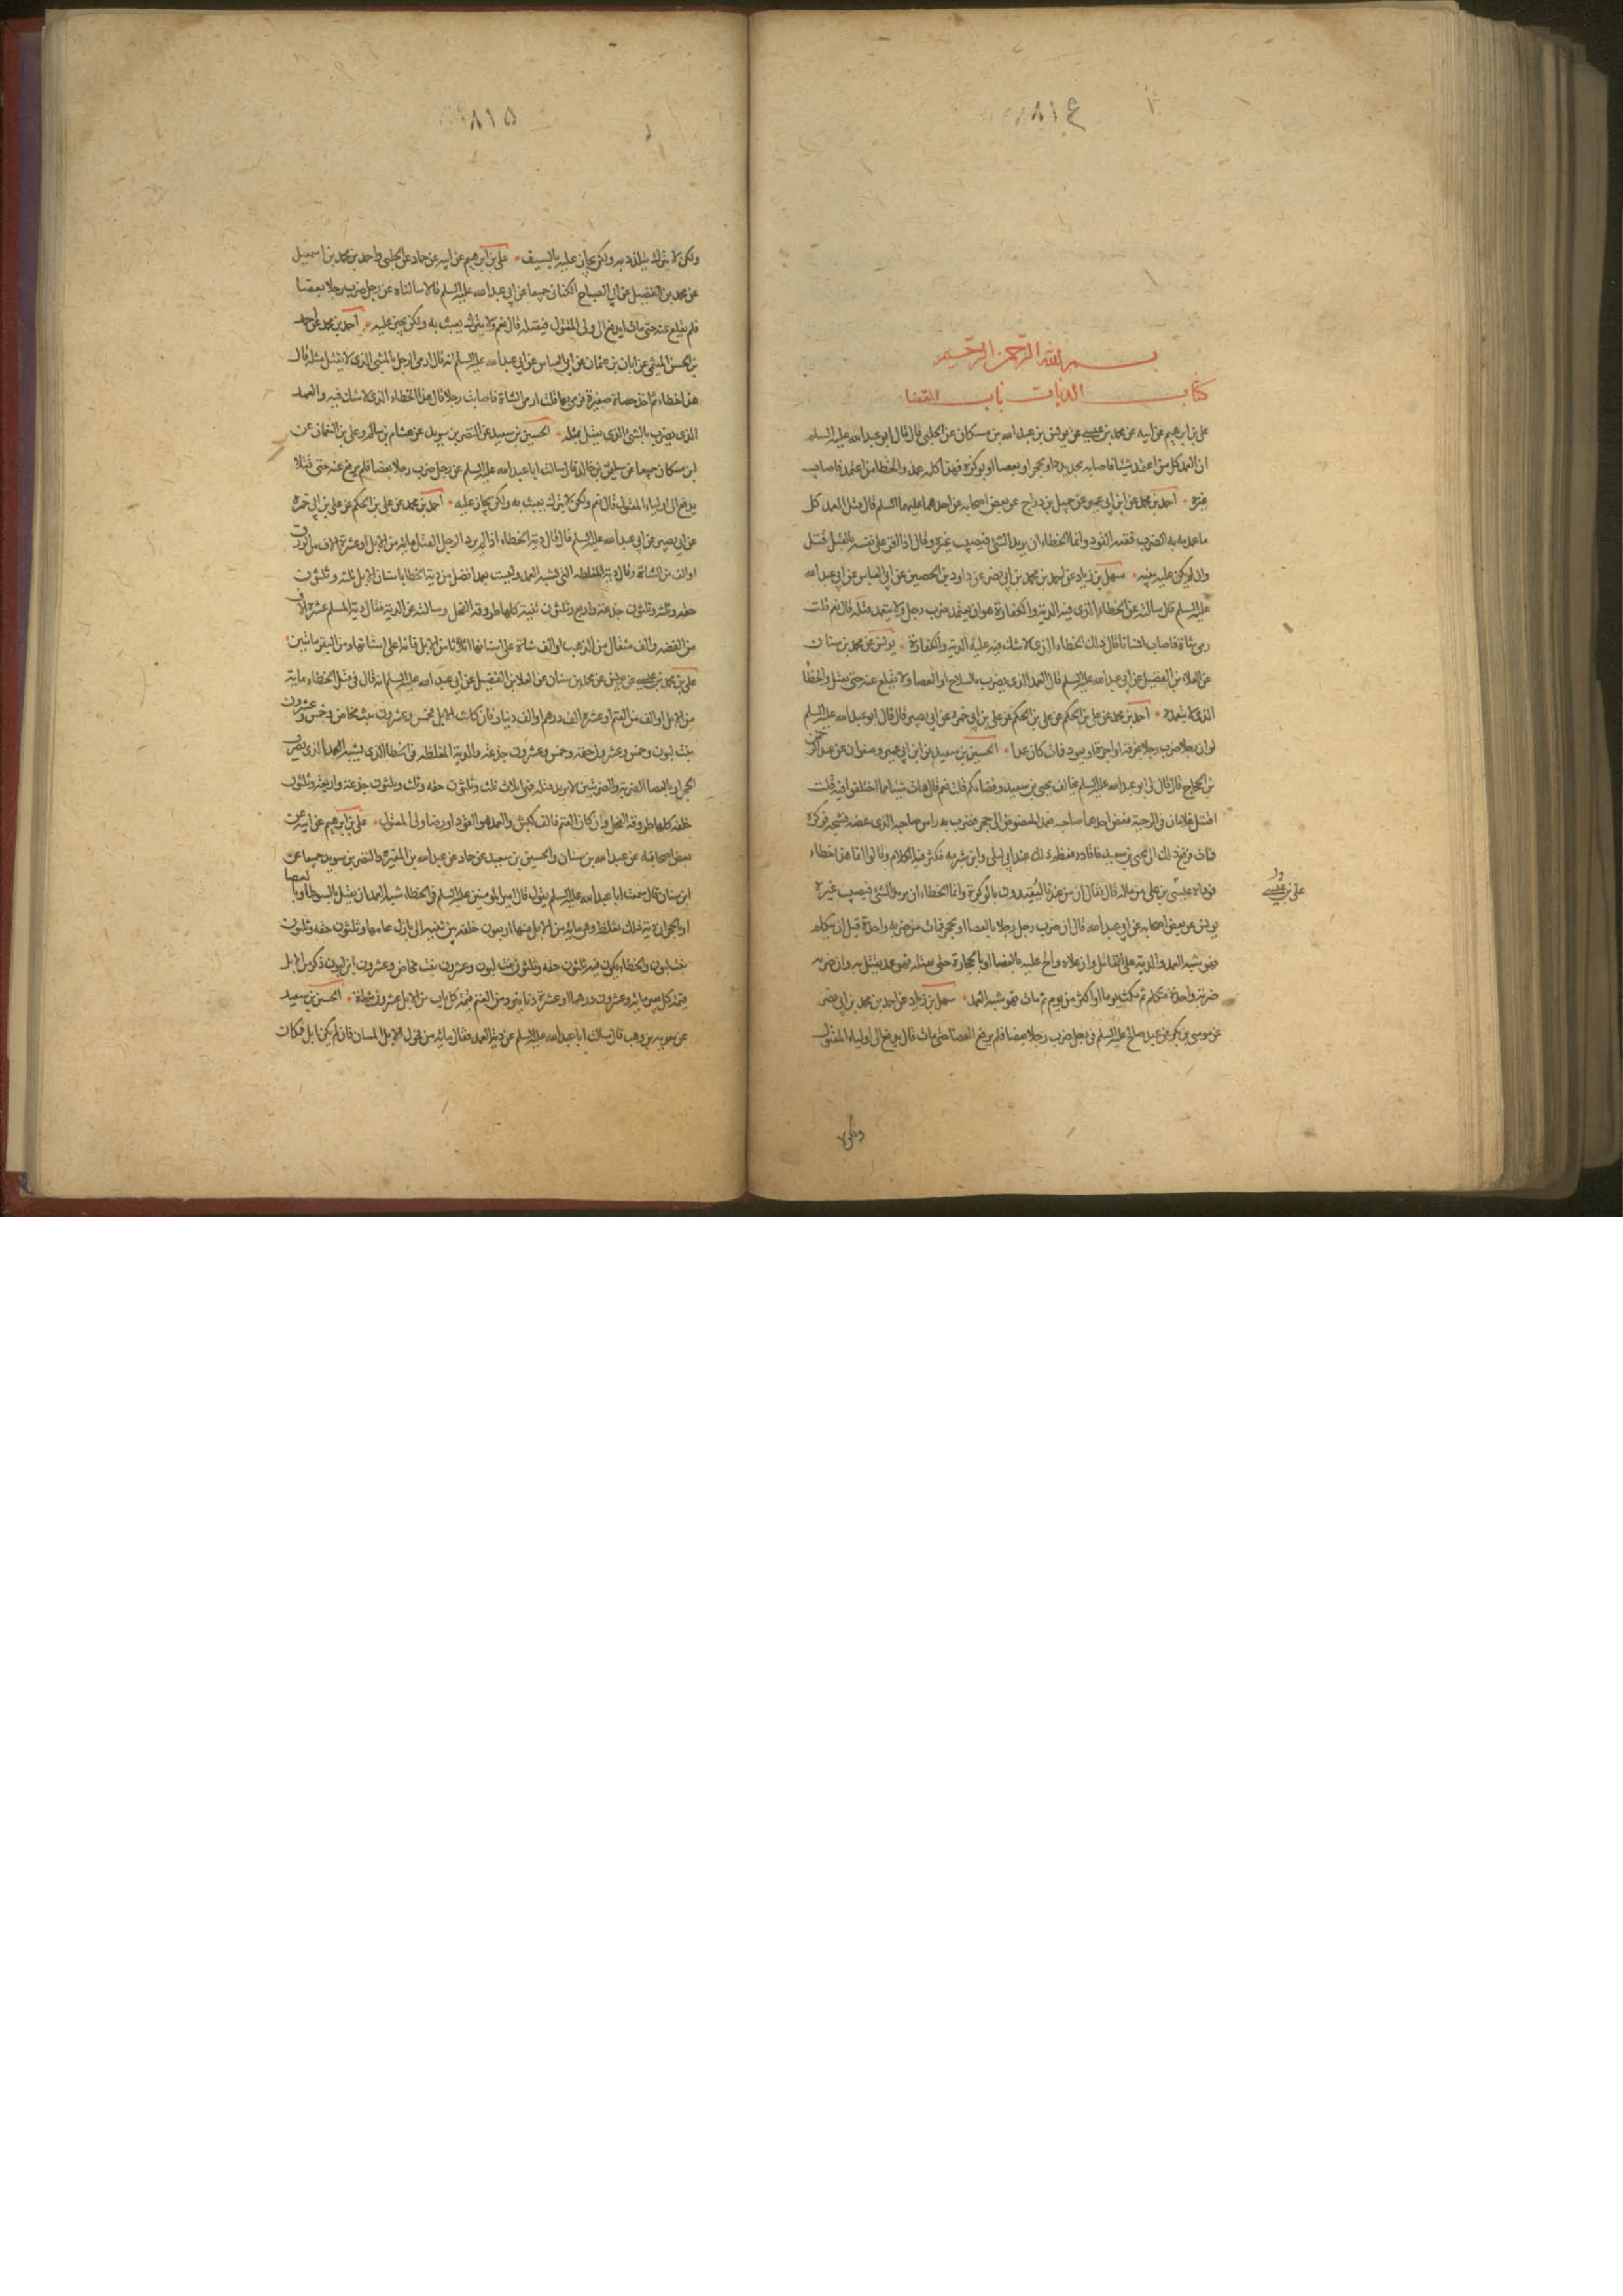 ٨١٤
بسم الله الرحمن الرحيم
كتاب الديات باب القضا
علي بن ابرهيم عن ابيه عن محمد بن عيسى عن يونس بن عبد الله بن مسكان عن الحلبي قال قال ابو عبد الله عليه السلم
ان العمد كل من اعتمد شيئا فاصابه بحديدة او بحجر او بعصا او بوكزة فهذا كله عمد والخطا من اعتمد فاصاب
غيره احمد بن محمد عن ابن ابي عمير عن جميل بن دراج عن بعض اصحابه عن احدهما عليهما السلم قال قتل العمد كل
ما عمد به الضرب فعليه القود وانما الخطاء ان يريد الشي فيصيب غيره وقال اذا اقر على نفسه بالقتل قتل
وان لم يكن عليه بينه سهل بن زياد عن احمد بن محمد بن ابي نصر عن داود بن الحصين عن ابي العباس عن ابي عبد الله
عليه السلم قال سالته عن الخطاء الذي فيه الدية والكفارة هو ان يعتمد ضرب رجل ولا يتعمد قتله قال نعم قلت
رمى شاة فاصاب انسانا قال ذلك الخطاء الذي لا شك فيه عليه الدية والكفارة يونس عن محمد بن سنان
عن العلاء بن الفضيل عن ابي عبد الله عليه السلم قال العمد الذي يضرب بالسلاح او العصا ولا يقلع عنه حتى يقتل والخطا
الذي لا يتعمده احمد بن محمد عن علي بن الحكم عن علي بن الحكم عن علي بن ابي حمزة عن ابي بصير قال قال ابو عبد الله عليه السلم
لو ان رجلا ضرب رجلا بخزفة او اجرة او بعود فمات كان عمدا الحسين بن سعيد عن ابن ابي عمير وصفوان عن عبد الرحمن
بن الحجاج قال قال لي ابو عبد الله عليه السلم يخالف يحيى بن سعيد وقضاءكم قلت نعم قال هات شيئا مما اختلفوا فيه قلت
اقتتل غلامان في الرحبة فعض احدهما صاحبه فعمد المعضوض الى حجر فضرب به راس صاحبه الذي عضه فشجه فوكزه
فمات فرفع ذلك الى يحيى بن سعيد فاقاده فعظم ذلك عند ابي ليلى وابن شبرمه فكثر فيه الكلام وقالوا انما هذا خطاء
فوداه عيسى بن علي من ماله قال فقال ان من عندنا ليقيدون بالوكزة وانما الخطاء ان يريد الشي فيصيب غيره
علي بن عيسى
يونس عن بعض اصحابه عن ابي عبد الله قال ان ضرب رجل رجلا بالعصا او بحجر فمات من ضربه واحدة قبل ان يتكلم
فهو شبه العمد والدية على القاتل وان علاه والح عليه بالعصا او بالحجارة حتى يقتله فهو عمد يقتل به وان ضربه
ضربة واحدة فتكلم ثم مكث يوما او اكثر من يوم ثم مات فهو شبه العمد سهل بن زياد عن احمد بن محمد بن ابي نصر
عن موسى بن بكر عن عبد صالح عليه السلم في رجل ضرب رجلا بعصا فلم يرفع العصا حتى مات قال يدفع الى اولياء المقتول
ولكن لا
٨١٥
ولكن لا يترك يتلذذ به ولكن يجاز عليه بالسيف علي بن ابرهيم عن ابيه عن حماد عن الحلبي واحمد بن محمد بن اسمعيل
عن محمد بن الفضيل عن ابي الصباح الكناني جميعا عن ابي عبد الله عليه السلم قالا سالناه عن رجل ضرب رجلا بعصا
فلم يقلع عنه حتى مات ايدفع الى ولي المقتول فيقتله قال نعم ولا يترك يعبث به ولكن يجيز عليه احمد بن محمد عن احمد
بن الحسن الميثمي عن ابان بن عثمان عن ابي العباس عن ابي عبد الله عليه السلم انه قال ارمي الرجل بالشي الذي لا يقتل مثله قال
هذا خطاء ثم اخذ حصاة صغيرة فرمى بها قلت ارمي الشاة فاصابت رجلا قال هذا الخطاء الذي لا شك فيه والعمد
الذي يضرب بالشي الذي يقتل بمثله الحسين بن سعيد عن النضر بن سويد عن هشام بن سالم وعلي بن النعمان عن
ابن مسكان جميعا عن سليمن بن خالد قال سالت ابا عبد الله عليه السلم عن رجل ضرب رجلا بعصا فلم يرفع عنه حتى قتل
يدفع الى اولياء المقتول قال نعم ولكن لا يترك يعبث به ولكن يجاز عليه احمد بن محمد عن علي بن الحكم عن علي بن ابي حمزه
عن ابي بصير عن ابي عبد الله عليه السلم قال قال دية الخطاء اذا لم يرد الرجل القتل مايه من الابل او عشرة الاف من الورق
او الف من الشاة وقال دية المغلظه التي تشبه العمد وليست بعمد افضل من دية الخطا باسنان الابل ثلثه وثلثون
حقه وثلثه وثلثون جذعة واربع وثلثون ثنية كلها طروقه الفحل وسالته عن الدية فقال دية المسلم عشرة الاف
من الفضه والف مثقال من الذهب او الف شاة على اسنانها اثلاثا من الابل مائه على اسنانها ومن البقر ماتين
علي بن محمد بن عيسى عن يونس عن محمد بن سنان عن العلا بن الفضيل عن ابي عبد الله عليه السلم انه قال في قتل الخطاء ماية
من الابل او الف من الغنم او عشرة الف درهم او الف دينار فان كانت الابل فخمس وعشرون بنت مخاض وخمس وعشرون
بنت لبون وخمس وعشرون حقه وخمس وعشرون جذعه والدية المغلظه في الخطا الذي يشبه العمد الذي يضرب
الحجر او بالعصا الضربة والضربتين لا يريد قتله فهي اثلاث ثلث وثلثون حقه وثلث وثلثون جذعة واربعه وثلثون
خلفه كلها طروقه الفحل وان كان الغنم فالف كبش والعمد هو القود او رضا ولي المقتول علي بن ابرهيم عن ابيه عن
بعض اصحابه عن عبد الله بن سنان والحسين بن سعيد عن حماد عن عبد الله بن المغيره والنضر بن سويد جميعا عن
ابن سنان قال سمعت ابا عبد الله عليه السلم يقول قال امير المومنين عليه السلم في الخطاء شبه العمد ان يقتل بالسوط او با لعصا
او بالحجر ان دية ذلك تغلظ وهي مايه من الابل منها اربعون خلفه بين ثنيه الى بازل عامها وثلثون حقه وثلثون
بنت لبون والخطاء يكون فيه ثلثون حقه وثلثون بنت لبون وعشرون بنت مخاض وعشرون ابن لبون ذكر من الابل
قيمة كل بعير مايه وعشرون درهما او عشرة دنانير ومن الغنم قيمة كل ناب من الابل عشرون شاة الحسين بن سعيد
عن معويه بن وهب قال سالت ابا عبد الله عليه السلم عن دية العمد فقال مايه من فحول الابل المسان فان لم يكن ابل فمكان